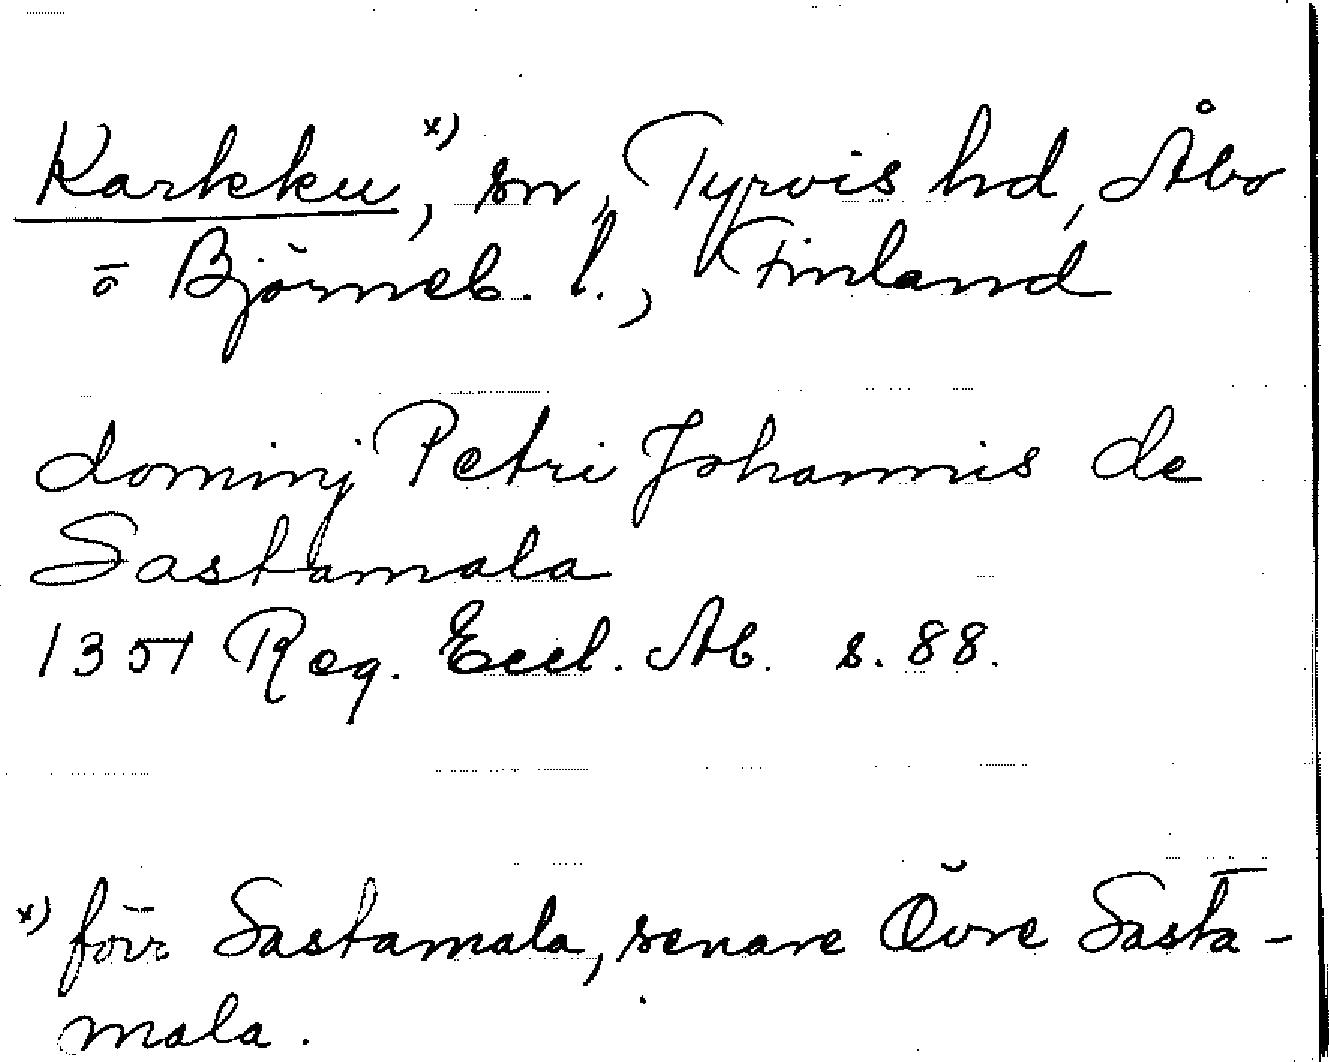 Karkku x), sn, Tyrvis hd, Åbo
o Björneb. l., Finland
dominj Petri Johannis de
Sastamala
1351 Reg. Eccl. Ab. s. 88.
x) förr Sastamala, senare Övre Sasta-
mala.